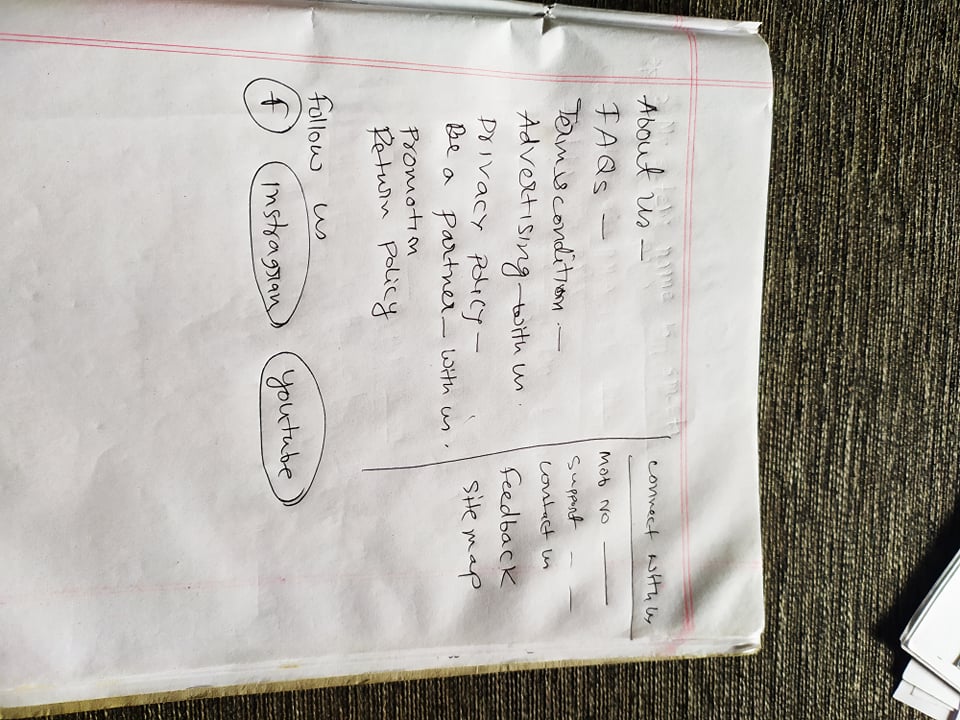 About Us —
FAQs —
Terms & condition —
Advertising — with us.
Privacy policy —
Be a partner — with us.
Promotion
Return policy
connect with us
Mob No ———
Support — —
contact us
feedback
site map
follow us
f instragran youtube